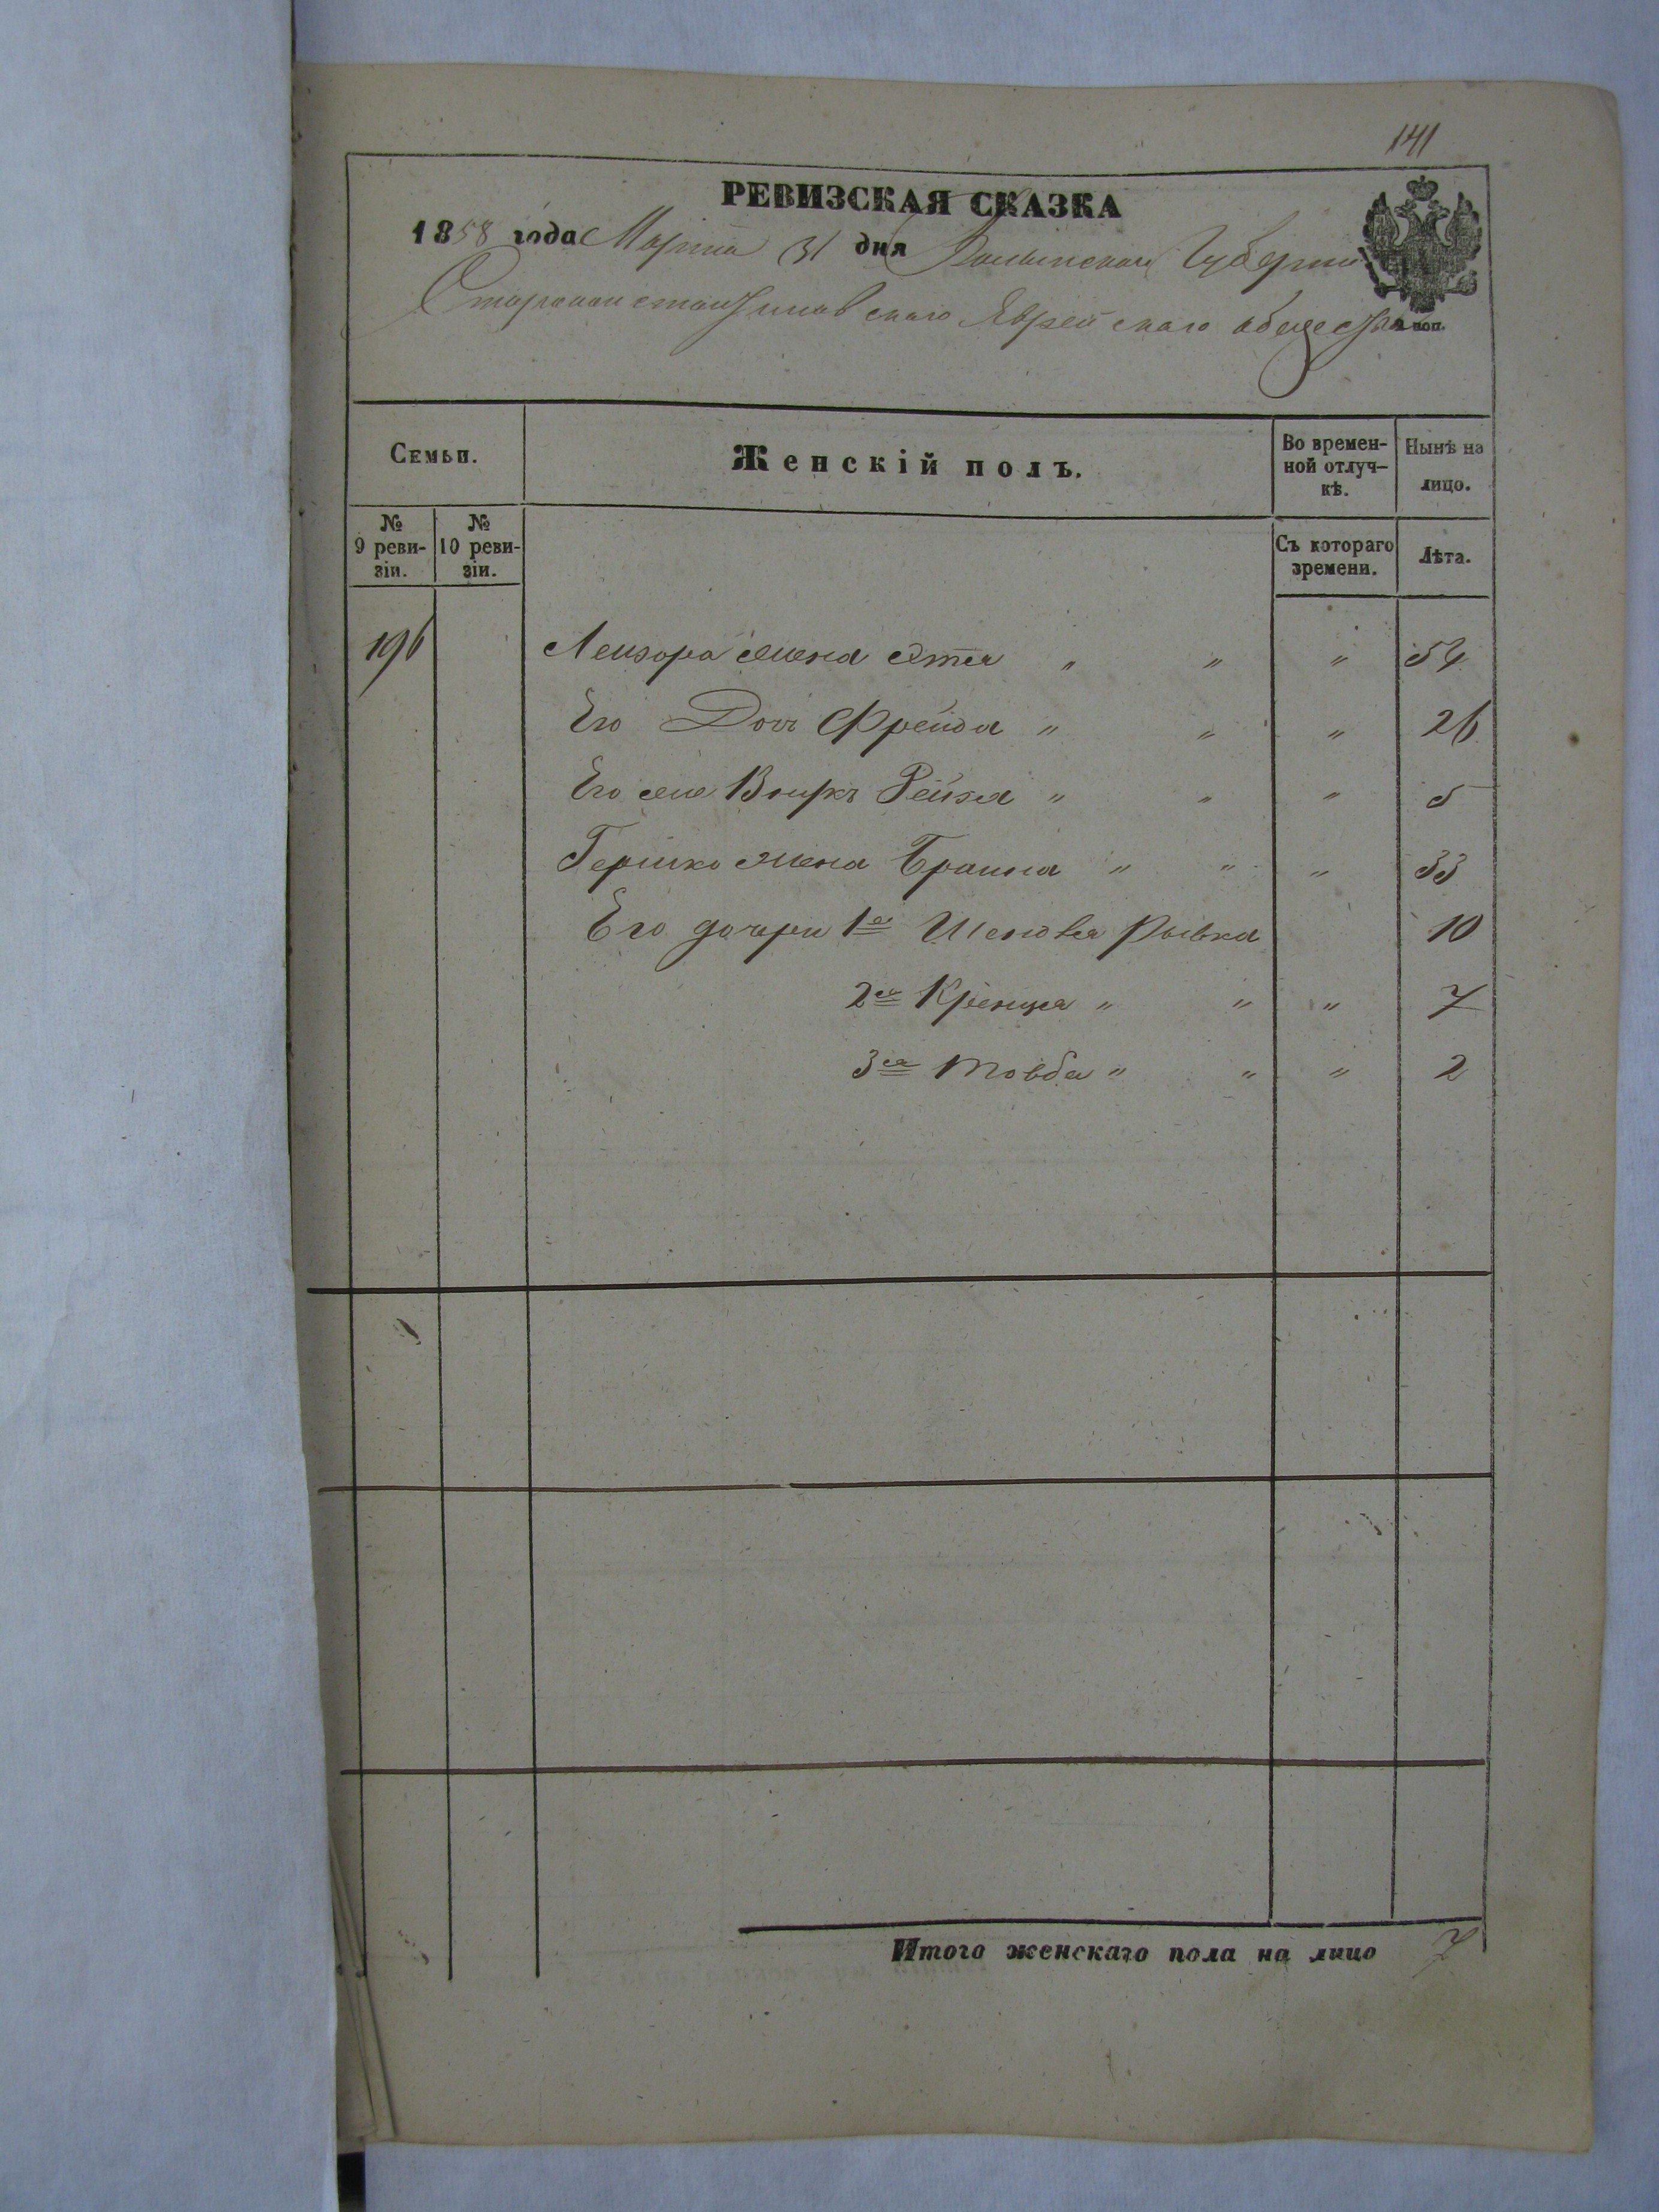 141
РЕВИЗСКАЯ СКАЗКА
1858 года Марта 31 дня Волынской Губернии
Староконстантиновскаго Яврейскаго общества
коп.
Семьи.
Женскій полъ.
Во времен-
ной отлуч-
кѣ.
Нынѣ на
лицо.
№
9 реви-
зіи.
№
10 реви-
зіи.
Съ котораго
времени.
Лѣта.
196 Лейзора жена Этя " " " 54
Его Доч Фрейда " " " 26
Его же Рейзя " " " 5
Гершко жена Браина " " " 33
Его дочери 1я Рывка 10
2я Крейнця " " " 7
3я Товба " " " 2
Итого женскаго пола на лицо 7